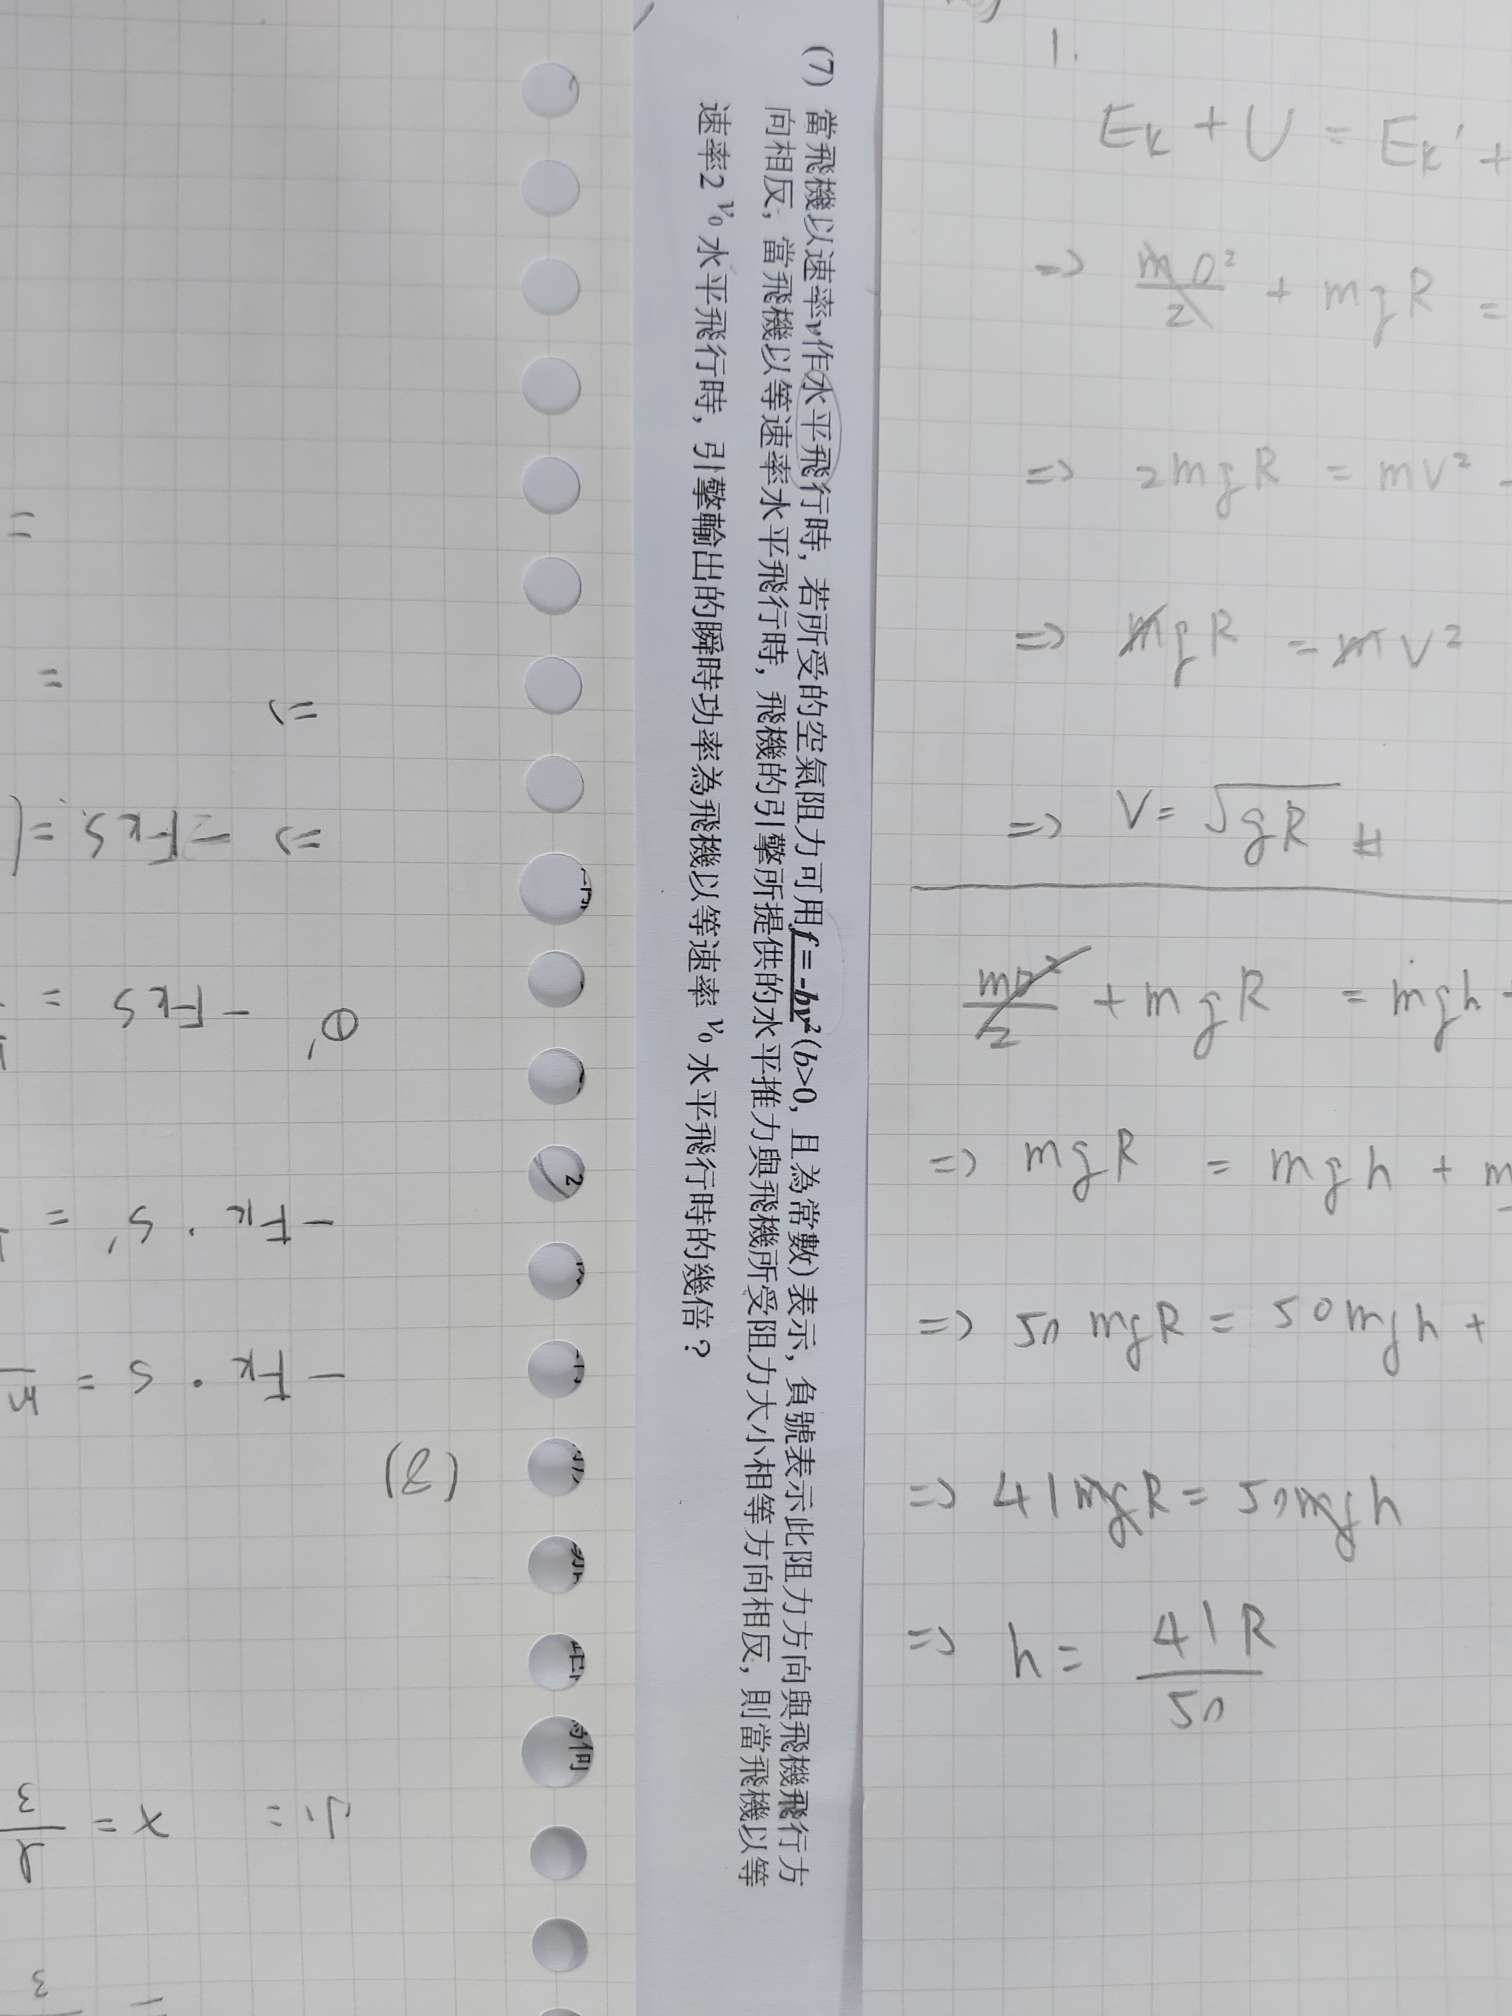 (7) 當飛機以速率v作水平飛行時，若所受的空氣阻力可用f = -bv²(b>0，且為常數)表示，負號表示此阻力方向與飛機飛行方
向相反，當飛機以等速率水平飛行時，飛機的引擎所提供的水平推力與飛機所受阻力大小相等方向相反，則當飛機以等
速率2 v₀ 水平飛行時，引擎輸出的瞬時功率為飛機以等速率 v₀ 水平飛行時的幾倍？
1.
Ek + U = Ek' +
=> m0²/2 + mgR =
=> 2mgR = mv²
=> mgR = mv²
=> V = √gR #
m0²/2 + mgR = mgh
=> mgR = mgh +
=> 50 mgR = 50mgh +
=> 41mgR = 50mgh
=> h = 41R/50
(8)
-Fk · S =
-Fk · S' =
-FkS =
=> -FkS =
=>
何